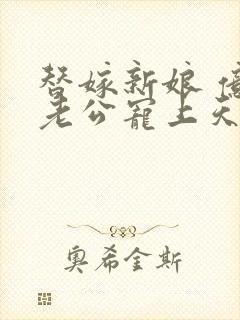 替嫁新娘 億
老公寵上天
奧希金斯